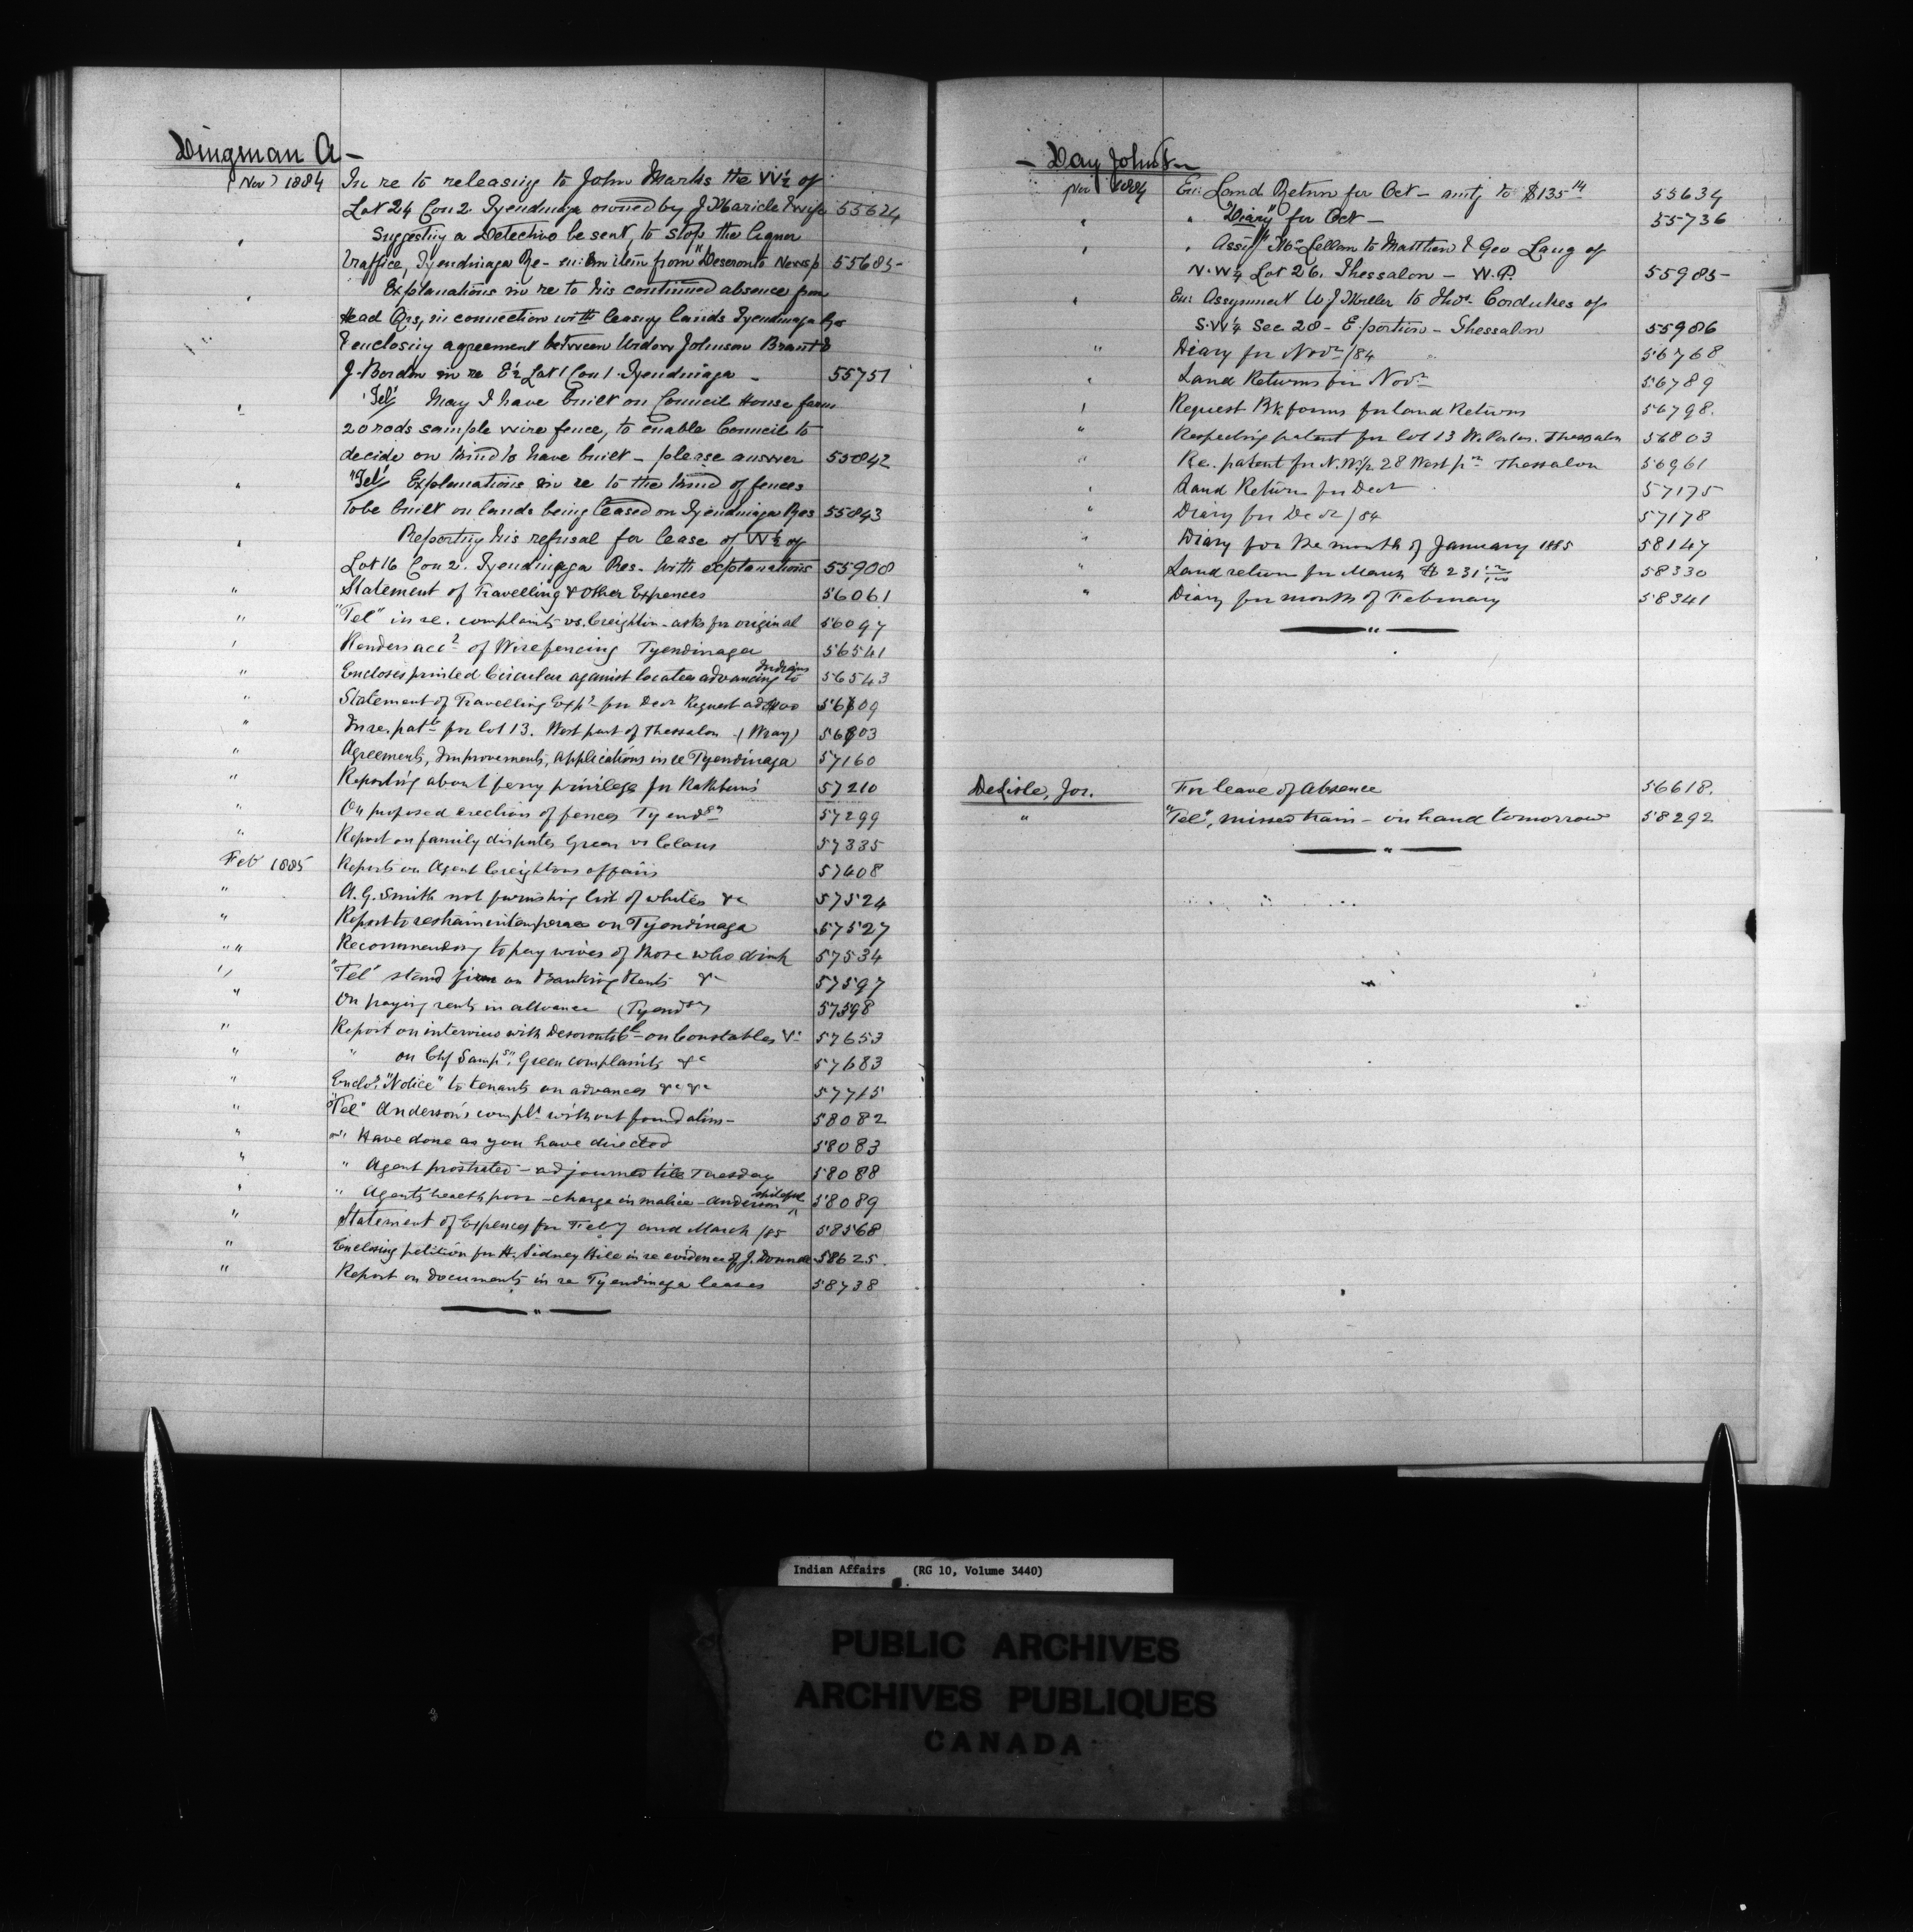 Dingman A -
Nov 1884 In re to releasing to John Marks the W½ of
Lot 24 Con 2 Tyendinaga owned by J Maricle & wife 55624
" Suggesting a Detective be sent, to stop the liquor
traffice, Tyendinaga Re - en: an item from "Deseronto Newsp 55685
" Explanations in re to his continued absence from
Head Qrs, in connection with leasing lands Tyendinaga Res
& enclosing agreement between Widow Johnson Brant &
J. Borden in re E½ Lot 1 Con 1 Tyendinaga - 55751
" "Tel" May I have built on Council House farm
20 rods sample wire fence, to enable Council to
decide on kind to have built - please answer 55842
" "Tel" Explanations in re to the kind of fences
to be built on lands being leased on Tyendinaga Res 55843
" Reporting his refusal for lease of W½ of
Lot 16 Con 2. Tyendinaga Res. with explanations 55900
" Statement of Travelling & other Expences 56061
" "Tel" in re. complaints vs. Creighton - asks for original 56097
" Renders acct of Wire fencing Tyendinaga 56541
" Encloses printed Circular against locatees advancing to Indians 56543
" Statement of Travelling Exps for Decr Request ad $400 56609
" In re. patt for lot 13. West part of Thessalon. (Wray) 56803
" Agreements, Improvements, Applications in re Tyendinaga 57160
" Reporting about ferry privilege for Rathbun's 57210
" On proposed erection of fences Tyendga 57299
" Report on family disputes Green vs Claus 57335
Feb 1885 Reports on Agent Creightons affairs 57408
" A. G. Smith not furnishing list of whites &c 57524
" Report to restrain intemperance on Tyendinaga 57527
" " Recommending to pay wives of those who drink 57534
" "Tel" stand firm on Banking Rents &c 57597
" On paying rents in advance (Tyendga) 57598
" Report on interview with Deseronto Cl - on Constables &c 57653
" " on Chf Sampsn. Green complaints &c 57683
" Enclos. "Notice" to tenants on advances &c &c 57715
" "Tel" Anderson's complt without foundation - 58082
" " Have done as you have directed 58083
" " Agent prostrated - adjourned till Tuesday 58088
" " Agents health poor - charge in malice - Anderson spiteful 58089
" Statement of Expences for Feby and March /85 58568
" Enclosing petition for H. Sidney Hill in re evidence of J. Donnell 58625.
" Report on documents in re Tyendinaga leases 58738
- Day John
Nov 1884 En: Land Return for Oct - amtg to $135 14 55634
" " "Diary" for Oct - 55736
" " Assigt McLellan to Matthew & Geo Laug of
N.W¼ Lot 26. Thessalon - W.P. 55985
" En: Assignment W J Miller to Thos. Cordukes of
S.W¼ Sec 28 - E. portion - Thessalon 55986
" Diary for Novr /84 56768
" Land Returns for Novr 56789
" Request Bk forms for land Returns 56798.
" Respecting patent for lot 13 W. Porton. Thessalon 56803
" Re. patent for N.W¼ 28 West pn Thessalon 56961
" Land Return for Decr 57175
" Diary for Decr /84 57178
" Diary for the month of January 1885 58147
" Land return for March $231 58330
" Diary for month of February 58341
DeLisle, Jos. For leave of Absence 56618.
" "Tel", missed train - on hand tomorrow 58292
Indian Affairs (RG 10, Volume 3440)
PUBLIC ARCHIVES
ARCHIVES PUBLIQUES
CANADA